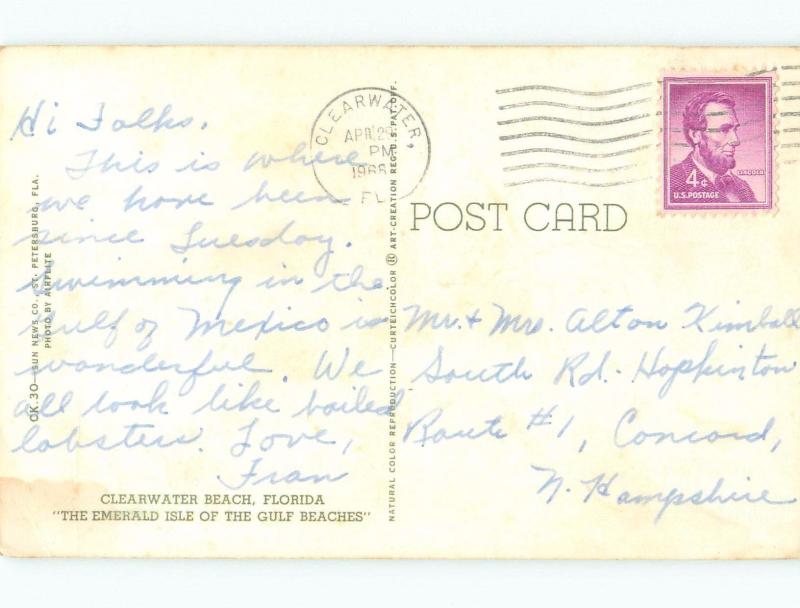 Hi Folks,
This is where
we have been
since Tuesday.
Swimming in the
Gulf of Mexico is
wonderful. We
all look like boiled
lobsters. Love,
Fran
CLEARWATER BEACH, FLORIDA
"THE EMERALD ISLE OF THE GULF BEACHES"
CK.30—SUN NEWS CO., ST. PETERSBURG, FLA.
PHOTO BY AIRFLITE
NATURAL COLOR REPRODUCTION—CURTEICHCOLOR ® ART-CREATION REG. U.S. PAT. OFF.
CLEARWATER
APR 29
PM
1966
FL
POST CARD
LINCOLN
4¢
U.S. POSTAGE
Mr. + Mrs. Alton Kimball
South Rd. - Hopkinton
Route #1, Concord,
N. Hampshire